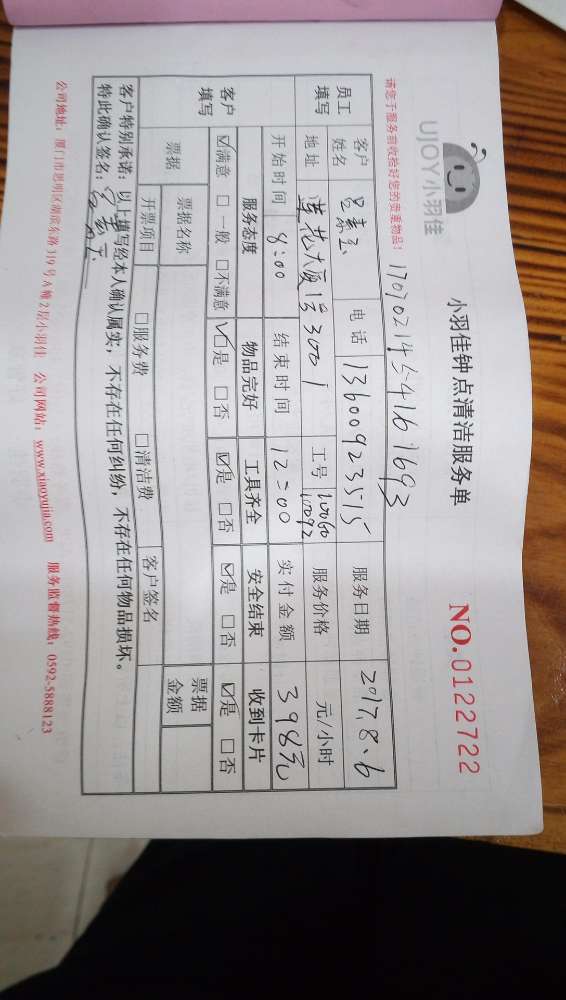 UJOY小羽佳
小羽佳钟点清洁服务单
NO.0122722
请您于服务前收拾好您的贵重物品!
170702145416 1693
员工填写 客户姓名 电话 13600923515 服务日期 2017.8.6
地址 莲花大厦1号3001 工号 10060 10092 服务价格 元/小时
开始时间 8:00 结束时间 12:00 实付金额 398元
客户填写 服务态度 物品完好 工具齐全 安全结束 收到卡片
☑满意 □一般 □不满意 ☑是 □否 ☑是 □否 ☑是 □否 ☑是 □否
票据 票据名称 票据金额
开票项目 □服务费 □清洁费 客户签名
客户特别承诺:以上填写经本人确认属实,不存在任何纠纷,不存在任何物品损坏。
特此确认签名:
公司地址:厦门市思明区湖滨东路319号A幢2层小羽佳 公司网站:www.xiaoyujia.com 服务监督热线:0592-5888123